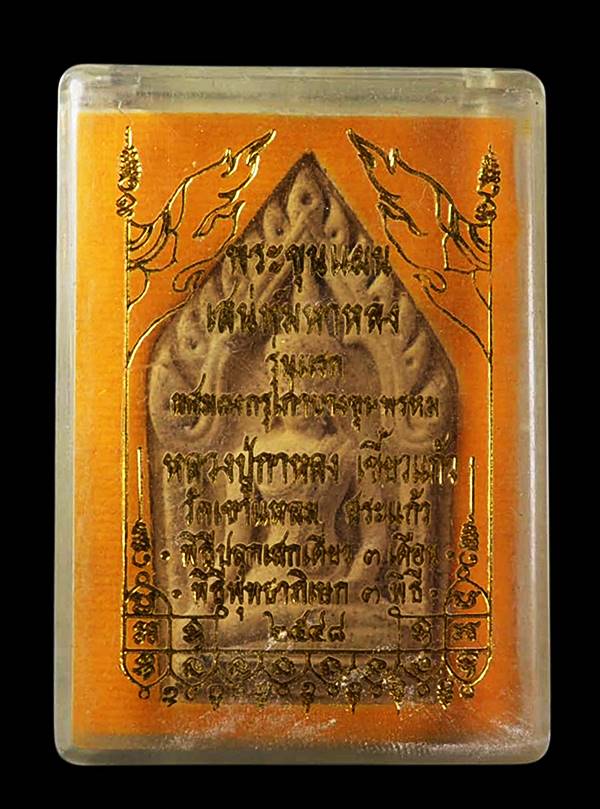 พระขุนแผน
เสน่ห์มหาหลง
รุ่นแรก
ผสมผงกรุเก่าบางขุนพรหม
หลวงปู่กาหลง เขี้ยวแก้ว
วัดเขาแหลม สระแก้ว
· พิธีปลุกเสกเดี่ยว ๓ เดือน ·
· พิธีพุทธาภิเษก ๓ พิธี ·
๒๕๔๘